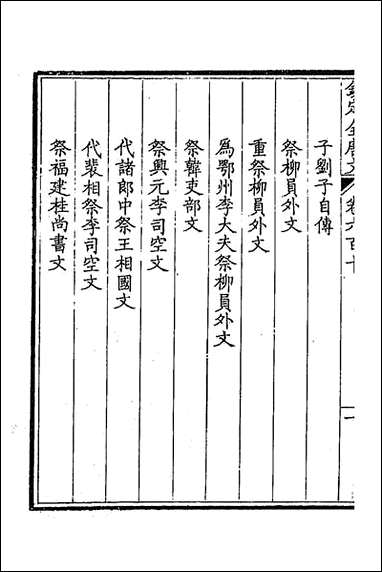 欽定全唐文 卷六百十 一
子劉子自傳
祭柳員外文
重祭柳員外文
爲鄂州李大夫祭柳員外文
祭韓吏部文
祭興元李司空文
代諸郎中祭王相國文
代裴相祭李司空文
祭福建桂尚書文